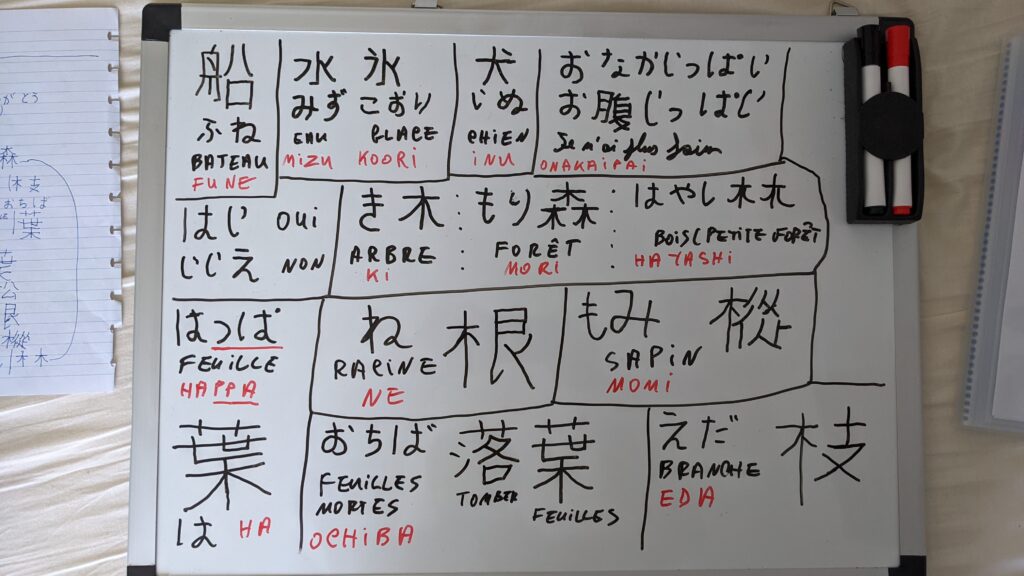 船
ふね
BATEAU
FUNE
水 氷
みず こおり
EAU GLACE
MIZU KOORI
犬
いぬ
CHIEN
INU
おなかいっぱい
お腹いっぱい
Je n'ai plus faim
ONAKAIPAI
はい OUI
いいえ NON
き 木 : もり 森 : はやし 林
ARBRE : FORÊT : BOIS (PETITE FORÊT
KI : MORI : HAYASHI
はっぱ
FEUILLE
HAPPA
葉
は HA
ね 根
RACINE
NE
もみ 樅
SAPIN
MOMI
おちば 落葉
FEUILLES MORTES
TOMBER FEUILLES
OCHIBA
えだ 枝
BRANCHE
EDA
がとう
森
枝
おちば
葉
根
樅